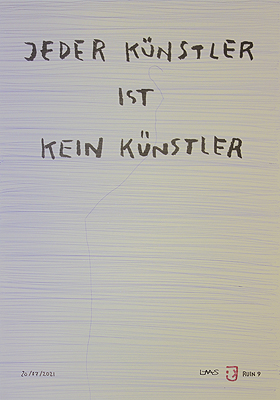 JEDER KÜNSTLER
IST
KEIN KÜNSTLER
20/57/2021
RUIN 9